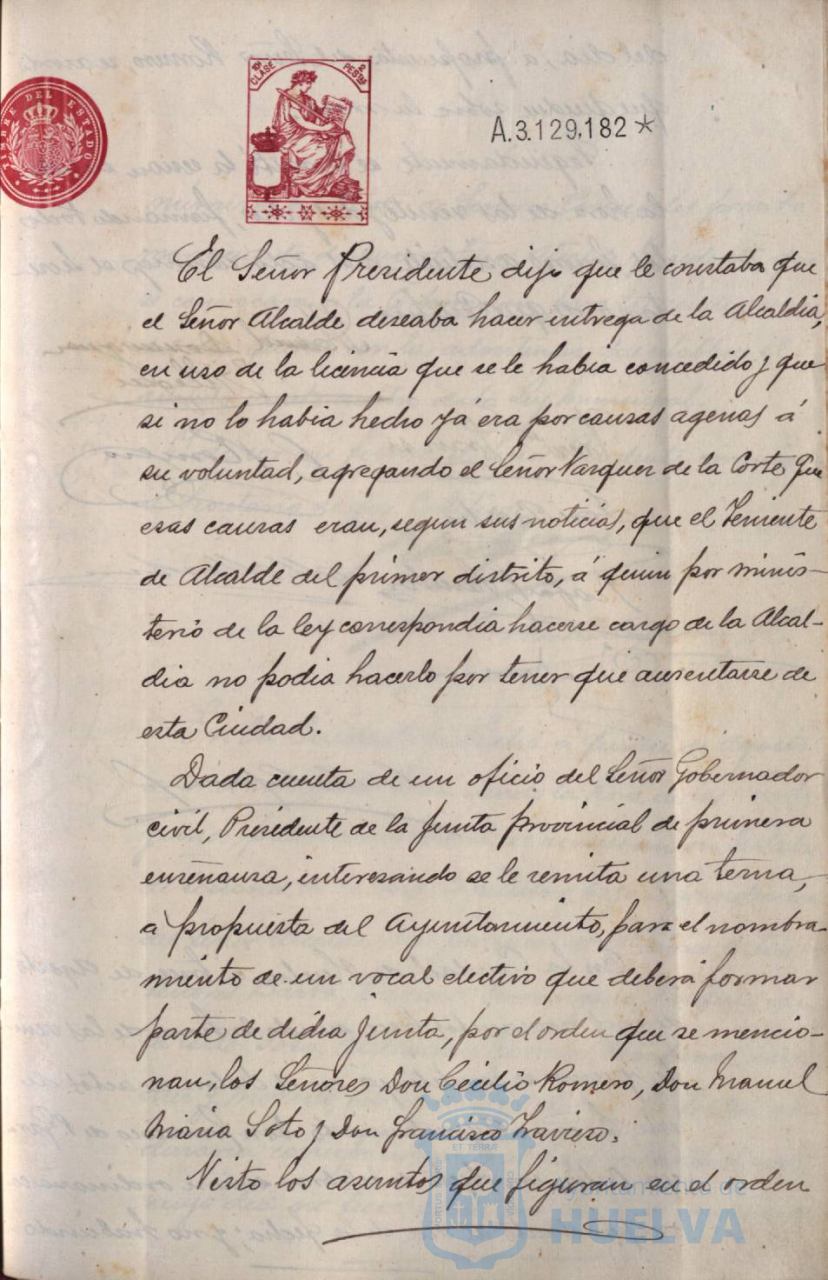 TIMBRE DEL ESTADO
10ª CLASE 2 PESTAS
A.3.129,182*
El Señor Presidente dijo que le constaba que
el Señor Alcalde deseaba hacer entrega de la Alcaldia,
en uso de la licencia que se le habia concedido y que
si no lo habia hecho yá era por causas agenas á
su voluntad, agregando el Señor Vazquez de la Corte que
esas causas eran, segun sus noticias, que el Teniente
de Alcalde del primer distrito, á quien por minis-
terio de la ley correspondia hacerse cargo de la Alcal-
dia no podia hacerlo por tener que ausentarse de
esta Ciudad.
Dada cuenta de un oficio del Señor Gobernador
civil, Presidente de la Junta provincial de primera
enseñanza, interesando se le remita una terna,
á propuesta del Ayuntamiento, para el nombra-
miento de un vocal electivo que deberá formar
parte de dicha Junta, por el orden que se mencio-
nan, los Señores Don Cecilio Romero, Don Manuel
Maria Soto y Don Francisco Traviero.
Visto los asuntos que figuran en el orden
Ayuntamiento de
HUELVA